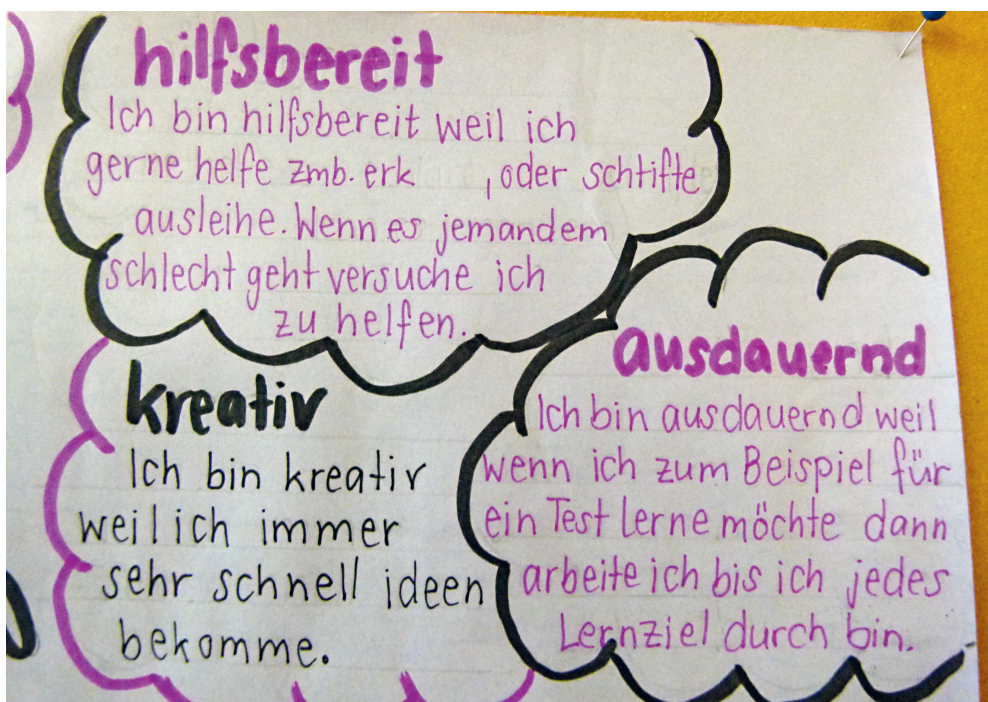 hilfsbereit
Ich bin hilfsbereit weil ich
gerne helfe zmb. erk , oder schtifte
ausleihe. Wenn es jemandem
schlecht geht versuche ich
zu helfen.
kreativ
Ich bin kreativ
weil ich immer
sehr schnell ideen
bekomme.
ausdauernd
Ich bin ausdauernd weil
wenn ich zum Beispiel für
ein Test Lerne möchte dann
arbeite ich bis ich jedes
Lernziel durch bin.